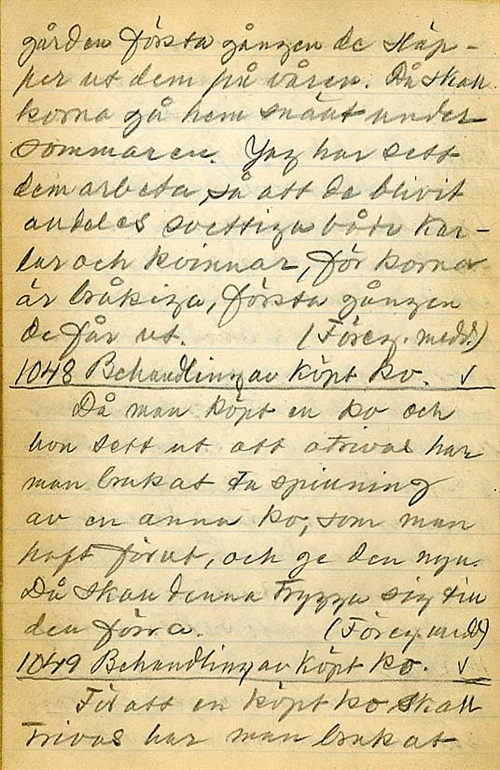 gården första gången de släp-
per ut dem på våren. Då skall
korna gå hem snällt under
sommaren. Jag har sett
dem arbeta, så att de blivit
andeles svettiga både kar-
lar och kvinnor, för korna
är bråkiga, första gången
de får ut. (Föreg. medd.)
1048 Behandling av köpt ko. ✓
Då man köpt en ko och
hon sett ut att otrivas har
man brukat ta spinning
av en anna ko, som man
haft förut, och ge den nya.
Då skall denna trygga sig till
den förra. (Föreg. medd.)
1049 Behandling av köpt ko. ✓
För att en köpt ko skall
trivas har man brukat